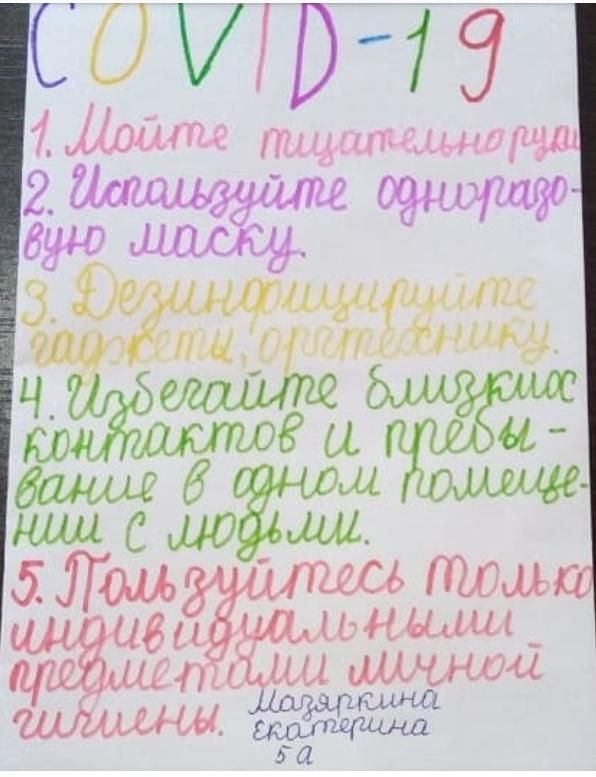 COVID-19
1. Мойте тщательно руки
2. Используйте одноразо-
вую маску.
3. Дезинфицируйте
гаджеты, оргтехнику.
4. Избегайте близких
контактов и пребы-
вание в одном помеще-
нии с людьми.
5. Пользуйтесь только
индивидуальными
предметами личной
гигиены.
Мазяркина
Екатерина
5а